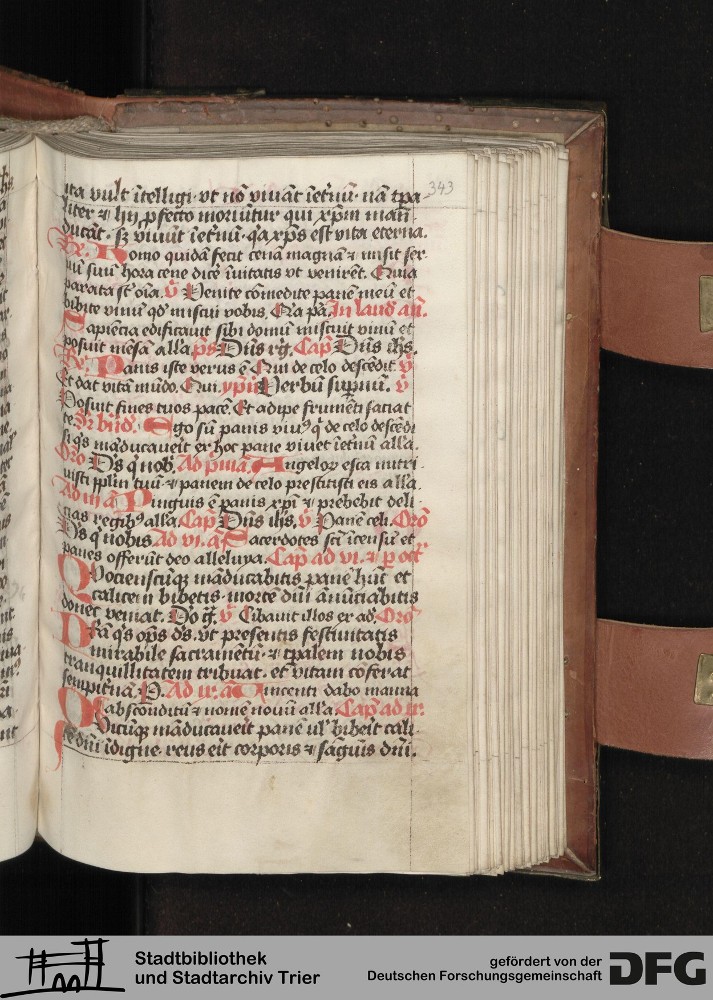 343
ita vult ītelligi · vt nō viuāt īet'nū · nā tpa
liter ⁊ hij pfecto moriūtur qui xp̄m mādu
ducāt · sꝫ viuūt īet'nū · q̄a xp̄s est vita eterna.
Re. Homo quidā fecit cenā magnā ⁊ misit ser
uū suū hora cene dicē īuitatis vt venirēt. Quia
parata sūt oīa. ℣ Venite cōmedite panē meū et
bibite vinū qd' miscui vobis. Q̄a pa. In laud añ.
Sapiēcia edificauit sibi domū miscuit vinū et
posuit mēsā alla. ps Dn̄s rg. Cap Dn̄s ihs.
Re. Panis iste verus ē Qui de celo descēdit. ℣
Et dat vitā mūdo. Qui. ypn̄ Verbū supnū. ℣
Posuit fines tuos pacē. Et adipe frumēti saciat
te. Sr bn̄d. Ego sū panis viuꝯ q̄ de celo descēdi
si q̄s māducaueit ex hoc pane viuet īet'nū alla.
Oro Ds q̄ nob. Ad pmā. Angeloꝝ esca nutri
uisti pplm̄ tuū ⁊ panem de celo prestitisti eis alla.
Ad iii a Pinguis ē panis xpi ⁊ prebebit deli
cias regibꝯ alla. Cap Dn̄s ihs. ℣ Panē celi. Oro
Ds q̄ nobis Ad vi. a Sacerdotes scī īcensū et
panes offerūt deo alleluya. Cap ad vi. ⁊ p oct
Quociēscūq̄ māducabitis panē hūc et
calicem bibetis · morte dn̄i ānūciabitis
donec veniat. Do ḡ. ℣ Cibauit illos ex ad. Oro
Fra q̄s ops ds. vt presentis festiuitatis
mirabile sacramētū · ⁊ tpalem nobis
tranquillitatem tribuat · et vitam cōferat
sempit'nā. P. Ad ix. a Vincenti dabo manna
absconditū ⁊ nomē nouū alla. Cap ad ix.
Quicūq̄ māducaueit panē ul' bibeit cali
cē dn̄i īdigne · reus eit corporis ⁊ sāguis dn̄i.
Stadtbibliothek
und Stadtarchiv Trier
gefördert von der
Deutschen Forschungsgemeinschaft DFG